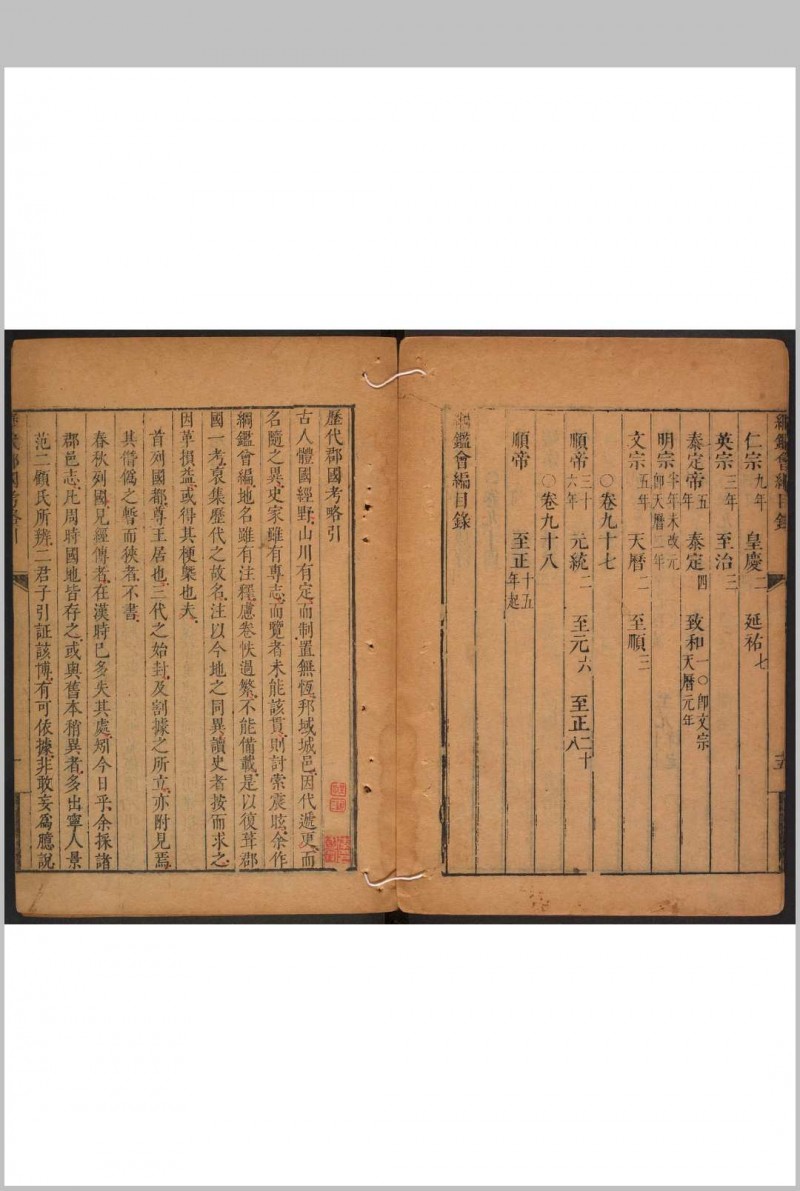 綱鑑會編目錄
十五
仁宗九年　皇慶二　延祐七
英宗三年　至治三
泰定帝五年　泰定四　致和一〇卽文宗天曆元年
明宗半年未改元卽天曆二年
文宗五年　天曆二　至順三
〇卷九十七
順帝三十六年　元統二　至元六　至正二十八
〇卷九十八
順帝　至正十五年起
綱鑑會編目錄
歷代郡國考略引
古人體國經野山川有定而制置無恆邦域城邑因代遞更而
名隨之異史家雖有專志而覽者未能該貫則討索震眩余作
綱鑑會編地名雖有注釋慮卷帙過繁不能備載是以復葺郡
國一考裒集歷代之故名注以今地之同異讀史者按而求之
因革損益或得其梗槩也夫
首列國都尊王居也三代之始封及割據之所立亦附見焉
其僭僞之暫而狹者不書
春秋列國見經傳者在漢時已多失其處矧今日乎余採諸
郡邑志凡周時國地皆存之或與舊本稍異者多出寧人景
范二顧氏所辨二君子引証該博有可依據非敢妄爲臆說
歷代郡國考略引
一